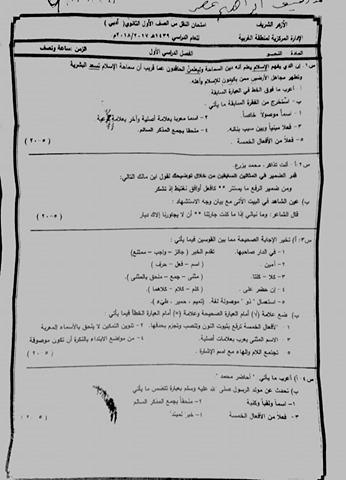 الأزهر الشريف
امتحان النقل من الصف الأول الثانوي ( أدبي )
الإدارة المركزية لمنطقة الغربية
للعام الدراسي ١٤٣٩هـ ٢٠١٧/٢٠١٨م
المادة : النحو
الفصل الدراسي الأول
الزمن : ساعة ونصف
س١: إن الذي يفهم الإسلام يعلم أنه دين السماحة وليعلمن الحاقدون عما قريب أن سماحة الإسلام تسعد البشرية
وتطهر مجاهل الأرضين ممن يكيدون للإسلام وأهله
أ) أعرب ما فوق الخط في العبارة السابقة
ب) استخرج من الفقرة السابقة ما يأتي :
١- اسماً موصولاً خاصاً
٢- اسما معربا بعلامة أصلية وآخر بعلامة فرعية
٣- فعلاً مبنياً وبين سبب بنائه
٤- ملحقا بجمع المذكر السالم
٥- فعلاً من الأفعال الخمسة
س٢: أ- أنت تذاكر ، محمد يزرع
قدر الضمير في المثالين السابقين من خلال توضيحك لقول ابن مالك التالي:
ومن ضمير الرفع ما يستتر ** كافعل أوافق نغتبط إذ تشكر
ب) عين الشاهد في البيت الآتي مع بيان وجه الاستشهاد :
قال الشاعر: وما نبالي إذا ما كنت جارتنا ** أن لا يجاورنا إلاك ديار
س٣: أ) تخير الإجابة الصحيحة مما بين القوسين فيما يأتي :
١- في الدار صاحبها
تقدم الخبر ( جائز – واجب – ممتنع)
٢- آمين
( اسم – فعل – حرف )
٣- كلا – كلتا
( مثنى – جمع – ملحق بالمثنى )
٤- إن حضر على
( كلم – كلام – كلاهما )
٥- استعمال " ذو " موصولة لغة
ب) ضع علامة √ أمام العبارة الصحيحة وعلامة × أمام العبارة الخطأ فيما يأتي
١- الأفعال الخمسة ترفع بثبوت النون وتنصب وتجزم بحذفها
٢- تنوين التمكين لا يلحق بالأسماء المعربة
٣- الاسم المثنى يعرب بعلامات أصلية
٤- من مواضع الابتداء بالنكرة أن تكون موصوفة
٥- تجتمع اللام والهاء مع اسم الإشارة
س٤: أ) أعرب ما يأتي " أحاضر محمد "
ب) تحدث عن مولد الرسول صلى الله عليه وسلم بعبارة تتضمن ما يأتي
١- اسماً ولقباً وكنية
٢- ملحقاً بجمع المذكر السالم
٣- فعلاً من الأفعال الخمسة